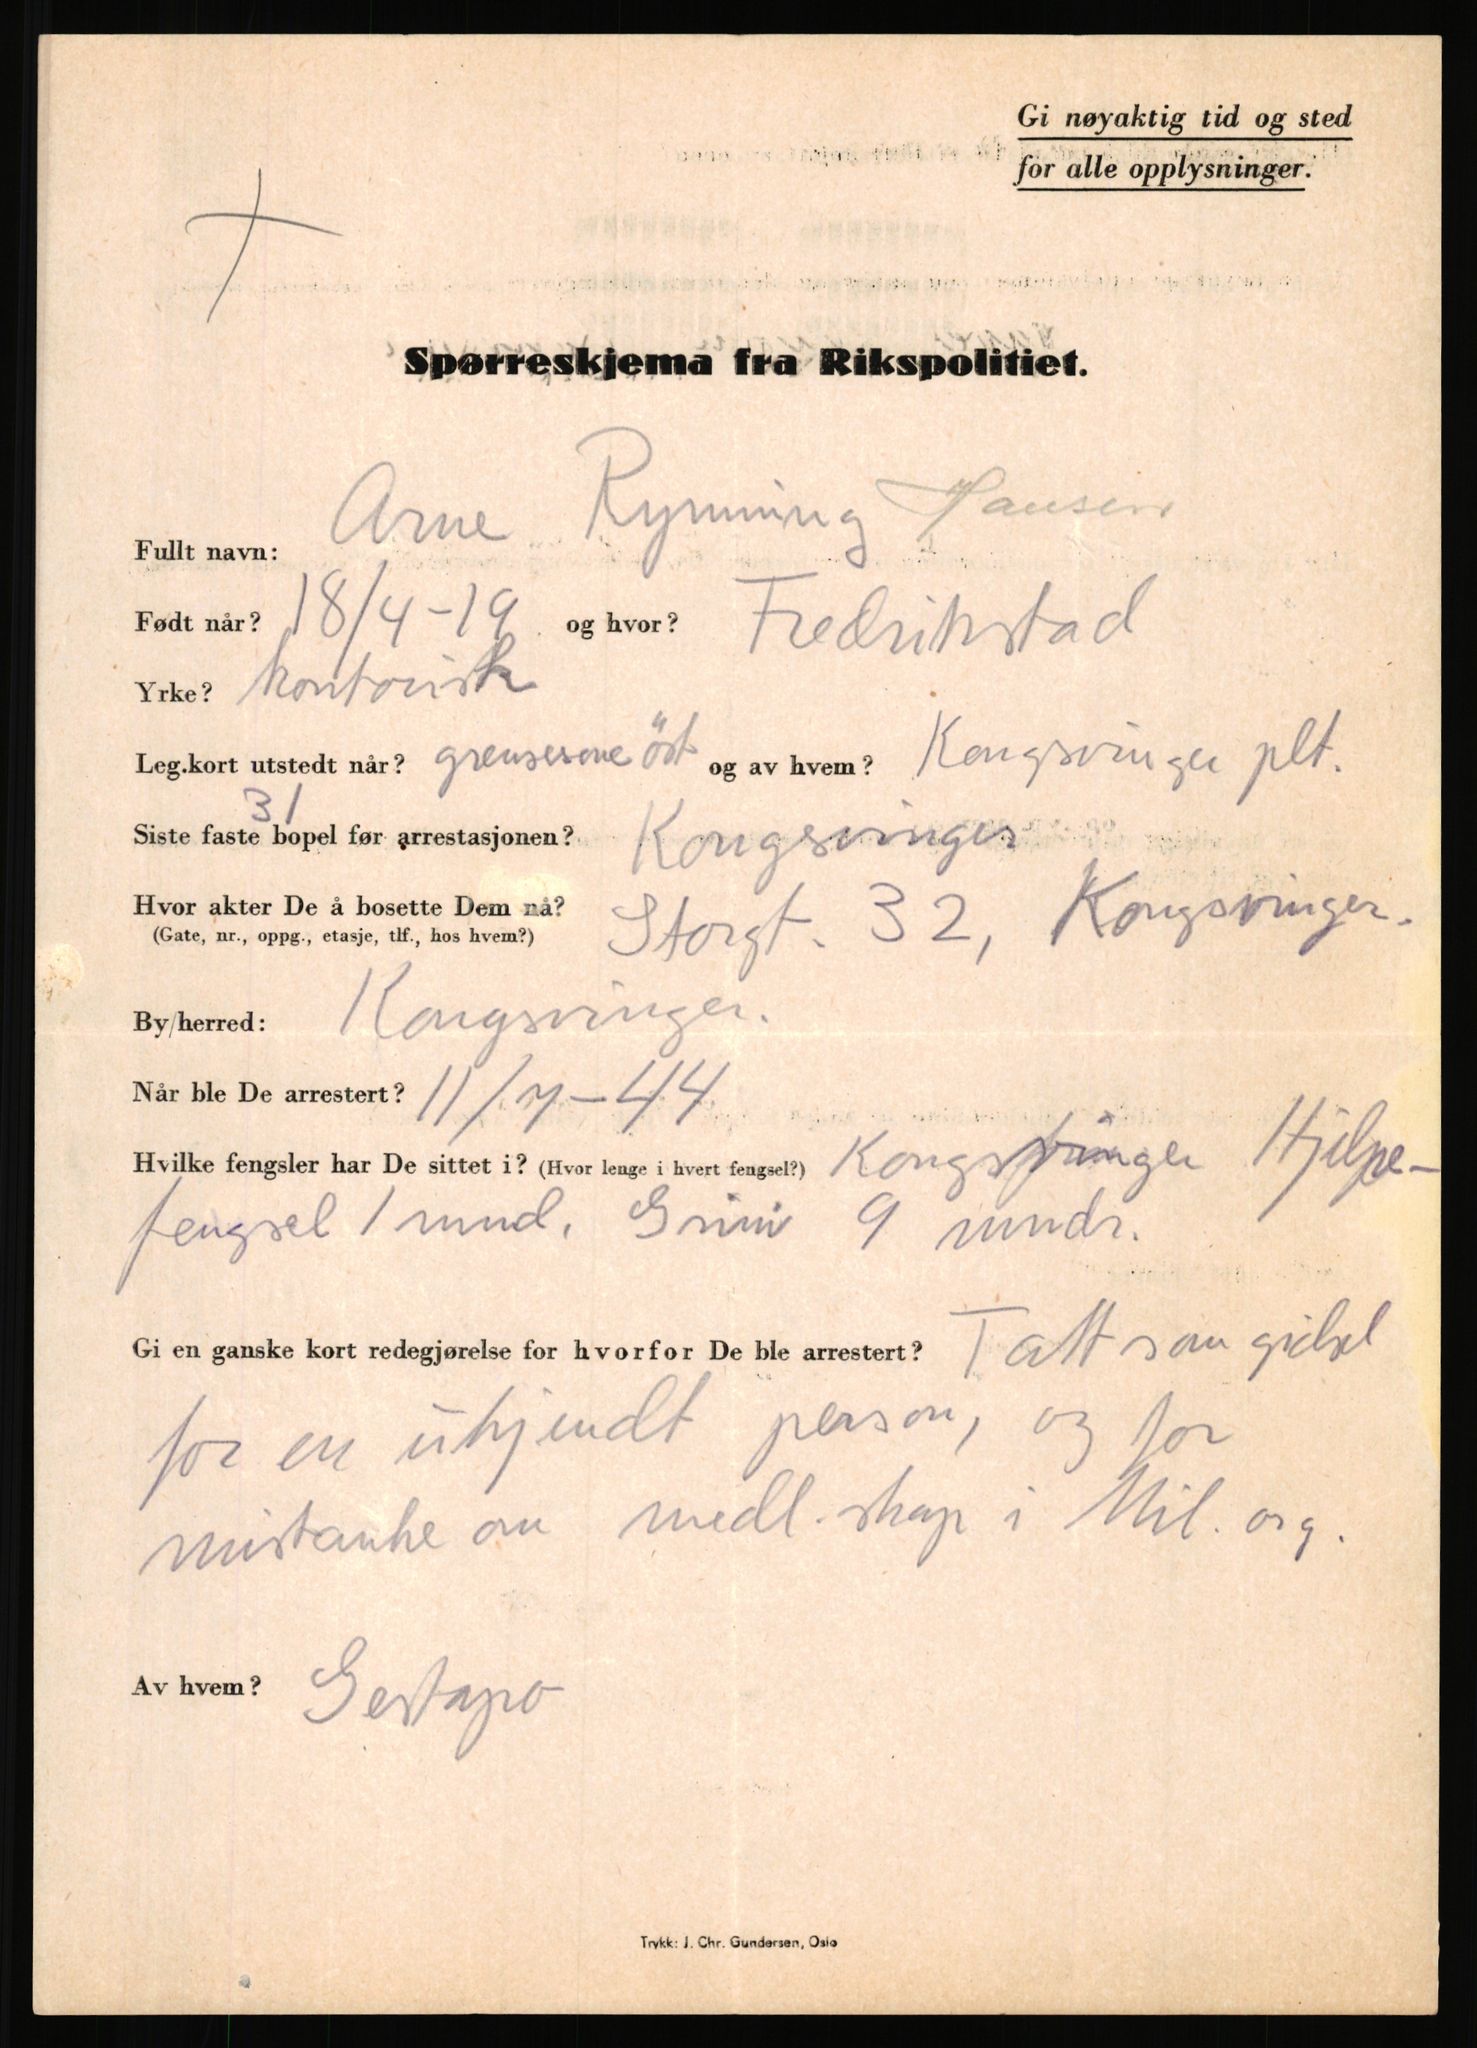 Gi nøyaktig tid og sted
for alle opplysninger.
Spørreskjema fra Rikspolitiet.
Fullt navn: Arne Rymming Hansen
Født når? 18/4-19 og hvor? Fredrikstad
Yrke? kontorist
Leg.kort utstedt når? grensesone öst og av hvem? Kongsvinger plt.
31
Siste faste bopel før arrestasjonen? Kongsvinger
Hvor akter De å bosette Dem nå? Storgt. 32, Kongsvinger.
(Gate, nr., oppg., etasje, tlf., hos hvem?)
By/herred: Kongsvinger.
Når ble De arrestert? 11/7-44
Hvilke fengsler har De sittet i? (Hvor lenge i hvert fengsel?) Kongsvinger Hjelpe-
fengsel 1 mnd. Grini 9 mndr.
Gi en ganske kort redegjørelse for hvorfor De ble arrestert? Tatt som gidsel
for en ukjendt person, og for
mistanke om medl.skap i Mil. org.
Av hvem? Gestapo
Trykk: J. Chr. Gundersen, Oslo